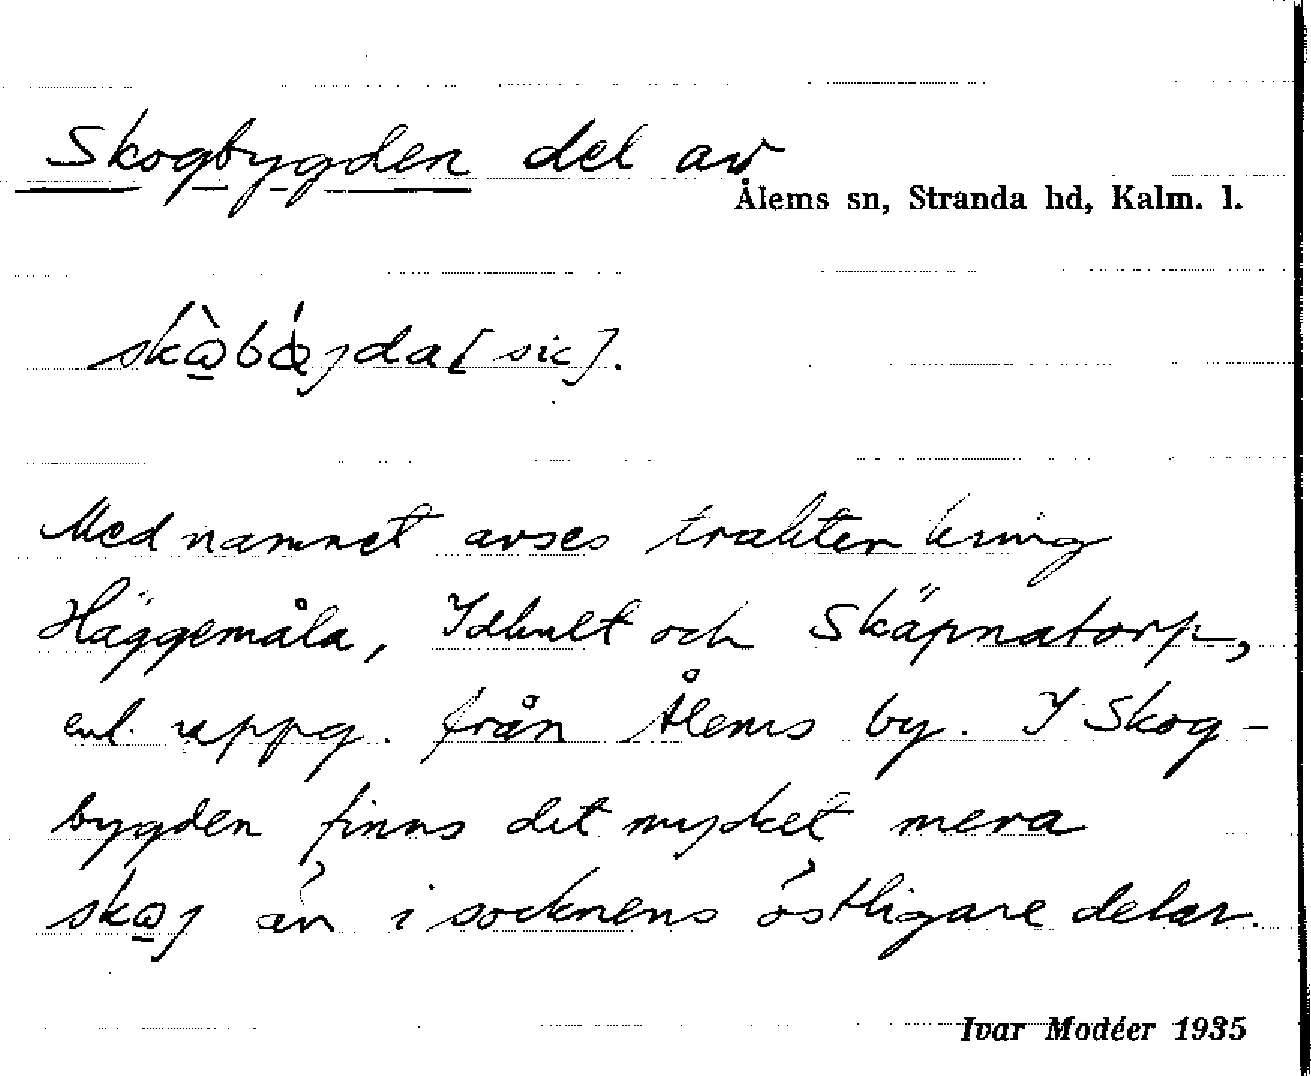 Skogbygden del av
Ålems sn, Stranda hd, Kalm. l.
[sic].
Med namnet avses trakten kring
Häggemåla, Idhult och Skäpnatorp,
enl. uppg. från Ålems by. I Skog-
bygden finns det mycket mera
än i socknens östligare delar.
Ivar Modéer 1935